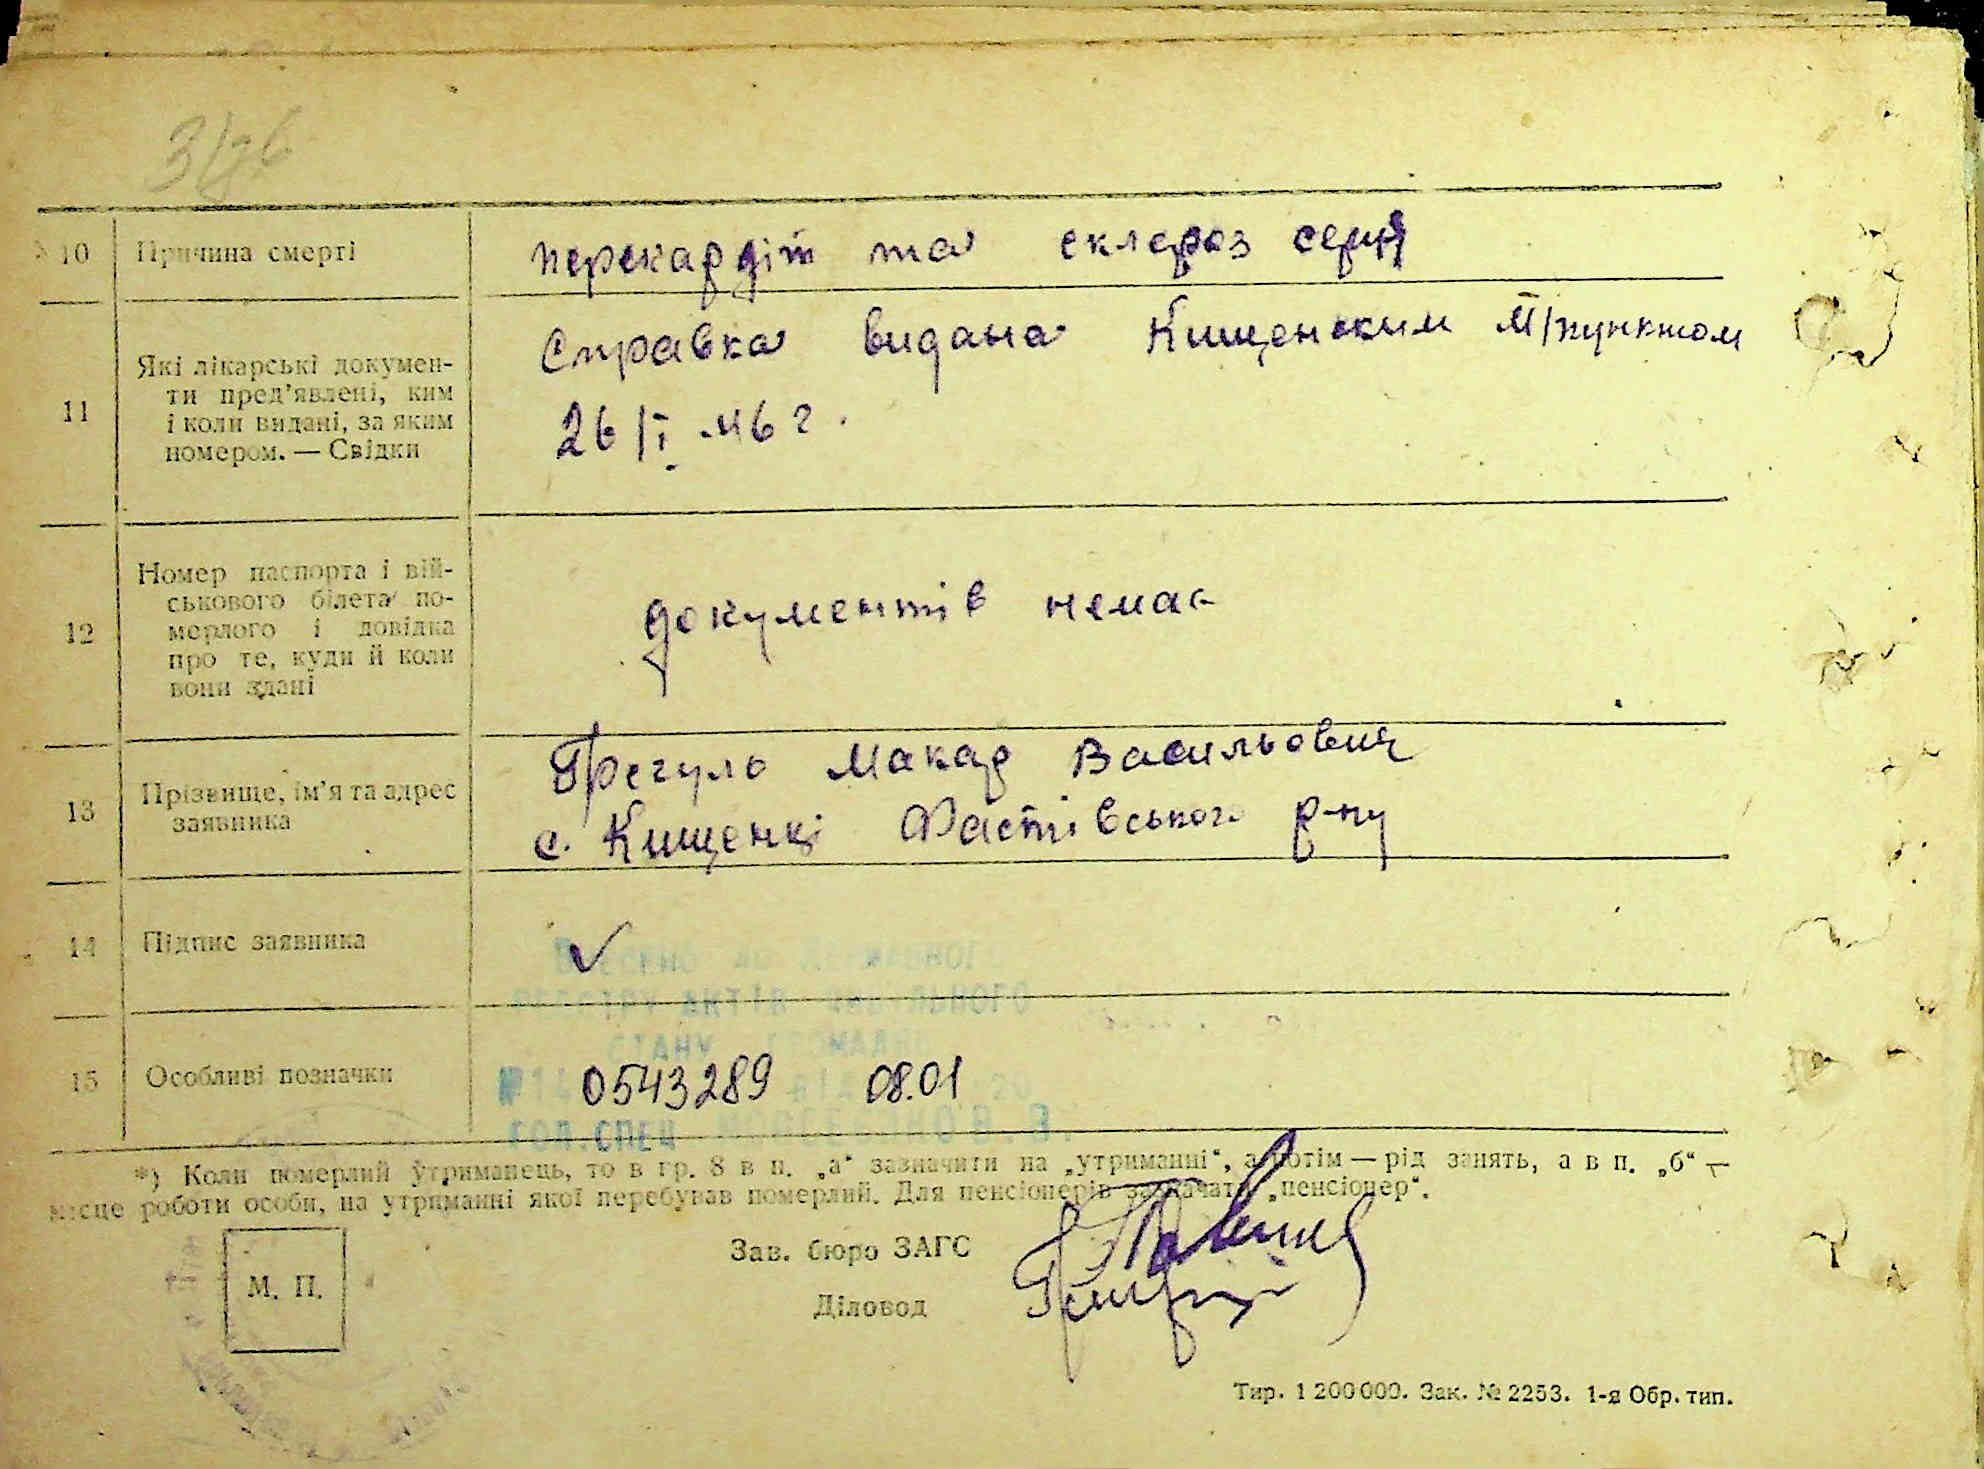 10 Причина смерті перекардіт та склероз серця
11 Які лікарські докумен-
ти пред'явлені, ким
і коли видані, за яким
номером. — Свідки
Справка видана Кищенским М/пунктом
26/I 46 г.
12 Номер паспорта і вій-
ськового білета по-
мерлого і довідка
про те, куди й коли
вони здані
документів немає
13 Прізвище, ім'я та адрес
заявника
Грегуль Макар Васильович
с. Кищенці Фастівського р-ну
14 Підпис заявника
ВНЕСЕНО ДО ДЕРЖАВНОГО
РЕЄСТРУ АКТІВ ЦИВІЛЬНОГО
СТАНУ ГРОМАДЯН
15 Особливі позначки № 0543289 08.01
ГОЛ.СПЕЦ В.
*) Коли померлий утриманець, то в гр. 8 в п. „а“ зазначити на „утриманні“, а потім — рід занять, а в п. „б“ —
місце роботи особи, на утриманні якої перебував померлий. Для пенсіонерів зазначати „пенсіонер“.
М. П.
Зав. бюро ЗАГС
Діловод
Тир. 1 200 000. Зак. № 2253. 1-я Обр. тип.